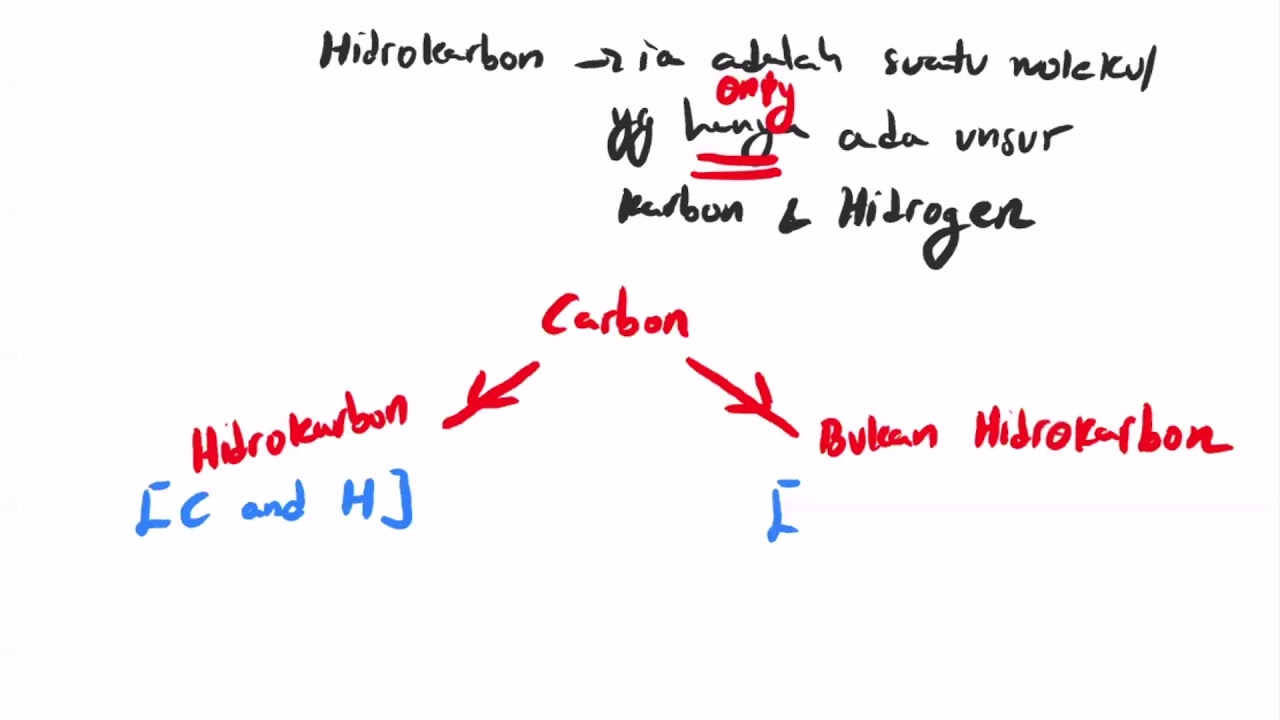 Hidrokarbon → ia adalah suatu molekul
only
yg hanya ada unsur
karbon & Hidrogen
Carbon
Hidrokarbon
Bukan Hidrokarbon
[C and H]
[